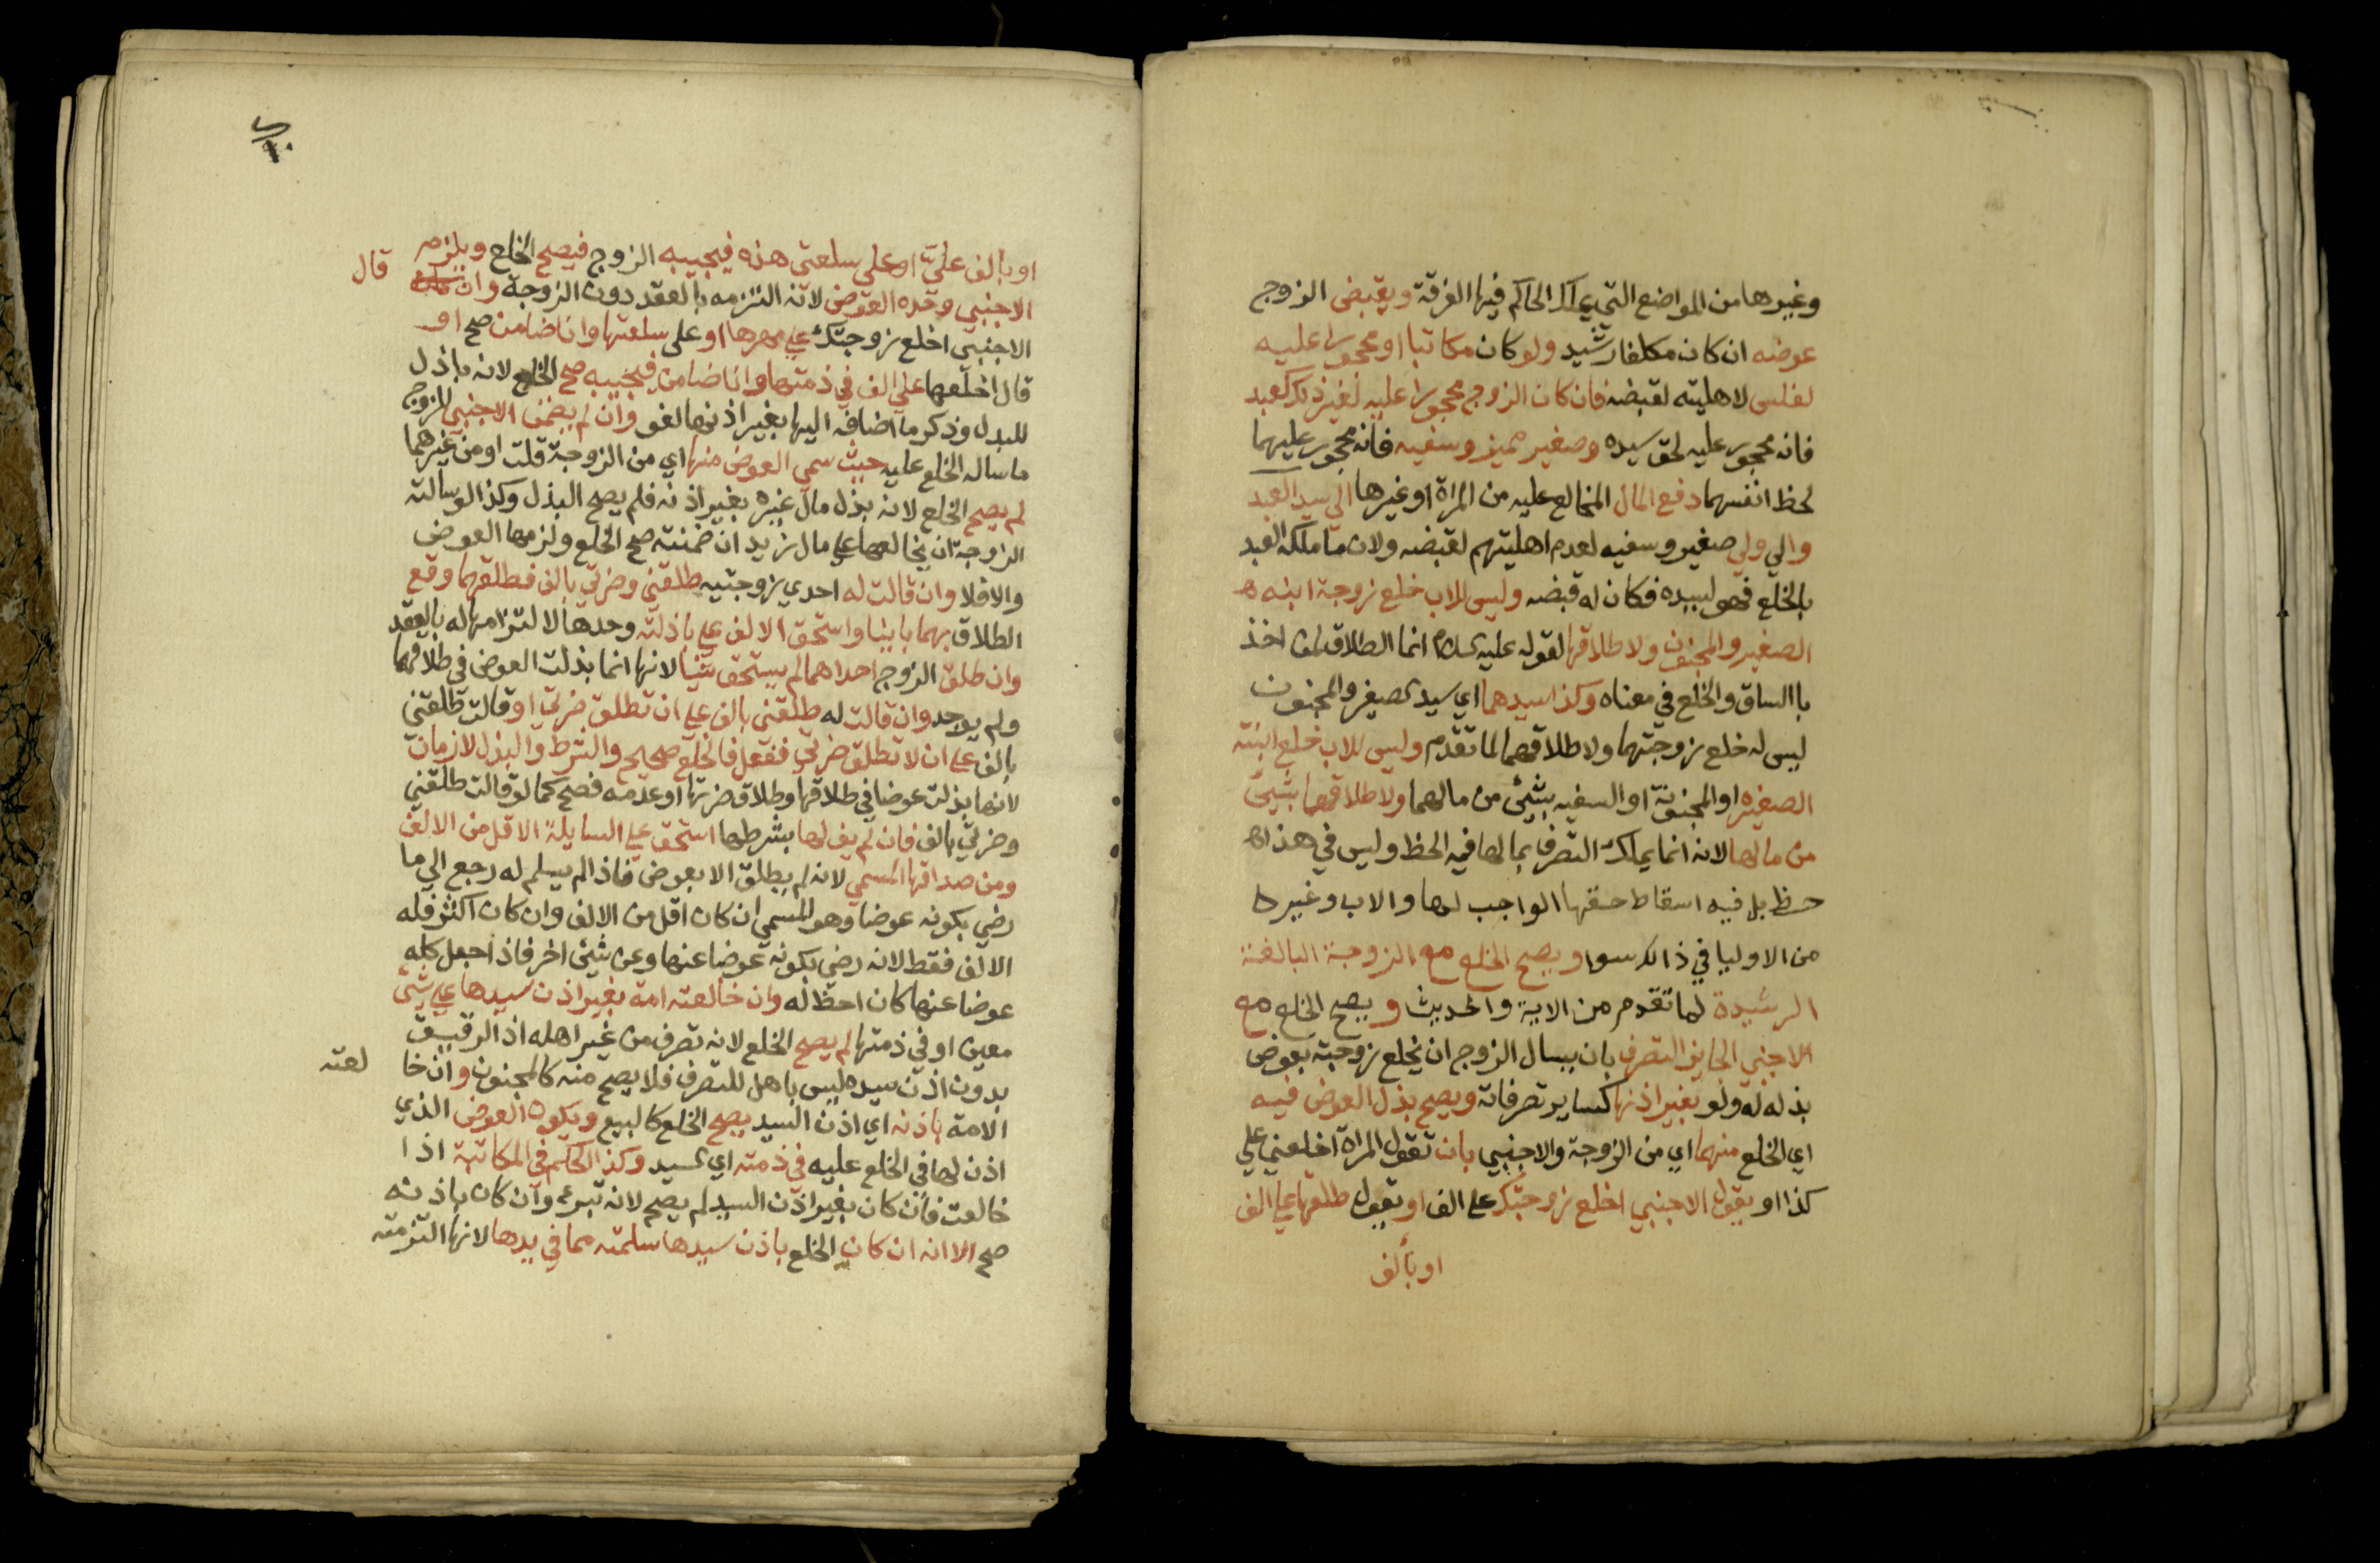 وغيرها من المواضع التي يملك الحاكم فيها الفرقة ويقبض الزوج
عوضه ان كان مكلفا رشيد ولو كان مكاتبا او محجورا عليه
لفلس لاهليته لقبضه فان كان الزوج محجورا عليه لغير ذلك كعبد
فانه محجور عليه لحق سيده وصغير مميز وسفيه فانه محجور عليهما
لحظ انفسهما دفع المال المخالع عليه من المراة او غيرها الي سيد العبد
والي ولي صغير وسفيه لعدم اهليتهم لقبضه ولان ما ملكه العبد
بالخلع فهو لسيده فكان له قبضه وليس للاب خلع زوجة ابنه
الصغير والمجنون ولا طلاقها لقوله عليه السلام انما الطلاق لمن اخذ
باالساق والخلع في معناه وكذا سيدهما اي سيد الصغير والمجنون
ليس له خلع زوجتهما ولا طلاقهما لما تقدم وليس للاب خلع ابنته
الصغيره او المجنونة او السفيه بشئ من مالهما ولا طلاقهما بشيئ
من مالها لانه انما يملك التصرف بما لها فيه الحظ وليس في هذا
حظ بل فيه اسقاط حقها الواجب لها والاب وغيره
من الاوليا في ذالك سوا ويصح الخلع مع الزوجة البالغة
الرشيدة لما تقدم من الاية والحديث و يصح الخلع مع
الاجنبي الجايز التصرف بان يسال الزوج ان يخلع زوجته بعوض
بذله له ولو بغير اذنها كساير تصرفاته ويصح بذل العوض فيه
اي الخلع منهما اي من الزوجة والاجنبي بان تقول المراة اخلعني علي
كذا او يقول الاجنبي اخلع زوجتك علي الف او يقول طلقها علي الف
او بالف
او بالف عليَّ او علي سلعتي هذه فيجيبه الزوج فيصح الخلع ويلزم
الاجنبي وحده العوض لانه التزمه بالعقد دون الزوجة وان قال
الاجنبي اخلع زوجتك علي مهرها او على سلعتها وانا ضامن صح او
قال اخلعها علي الف في ذمتها وانا ضامن فيجيبه صح الخلع لانه باذل
للبدل وذكر ما اضافه اليها بغير اذنها لغو وان لم يضمن الاجنبي للزوج
ما ساله الخلع عليه حيث سمي العوض منها اي من الزوجة قلت او من غيرهما
لم يصح الخلع لانه بذل مال غيره بغير اذنه فلم يصح البذل وكذا لو سالت
الزوجة ان يخالعها علي مال زيد ان ضمنته صح الخلع ولزمها العوض
والا فلا وان قالت له احدي زوجتيه طلقني وضرتي بالف فطلقهما وقع
الطلاق بهما باينا واستحق الالف علي باذلته وحدها لالتزامها له بالعقد
وان طلق الزوج احداهما لم يستحق شيا لانها انما بذلت العوض في طلاقهما
ولم يوجد وان قالت له طلقني بالف علي ان تطلق ضرتي او قالت طلقني
بالف علي ان لا تطلق ضرتي ففعل فالخلع صحيح والشرط والبذل لازمان
لانها بذلت عوضا في طلاقها وطلاق ضرتها او عدمه فصح كما لو قالت طلقني
وضرتي بالف فان لم يف لها بشرطها استحق علي السايلة الاقل من الالف
ومن صداقها المسمي لانه لم يطلق الا بعوض فاذا لم يسلم له رجع الي ما
رضي بكونه عوضا وهو المسمي ان كان اقل من الالف وان كان اكثر فله
الالف فقط لانه رضي بكونه عوضا عنها وعن شيئ اخر فاذا جعل كله
عوضا عنها كان احظ له وان خالعته امة بغير اذن سيدها علي شيئ
معين او في ذمتها لم يصح الخلع لانه تصرف من غير اهله اذ الرقيق
بدون اذن سيده ليس باهل للتصرف فلا يصح منه كالمجنون وان خا لعته
الامة باذنه اي اذن السيد يصح الخلع كالبيع ويكون العوض الذي
اذن لها في الخلع عليه في ذمته اي السيد وكذا الحكم في المكاتبة اذا
خالعت فان كان بغير اذن السيد لم يصح لانه تبرع وان كان باذنه
صح الا انه ان كان الخلع باذن سيدها سلمته مما في يدها لانها التزمته